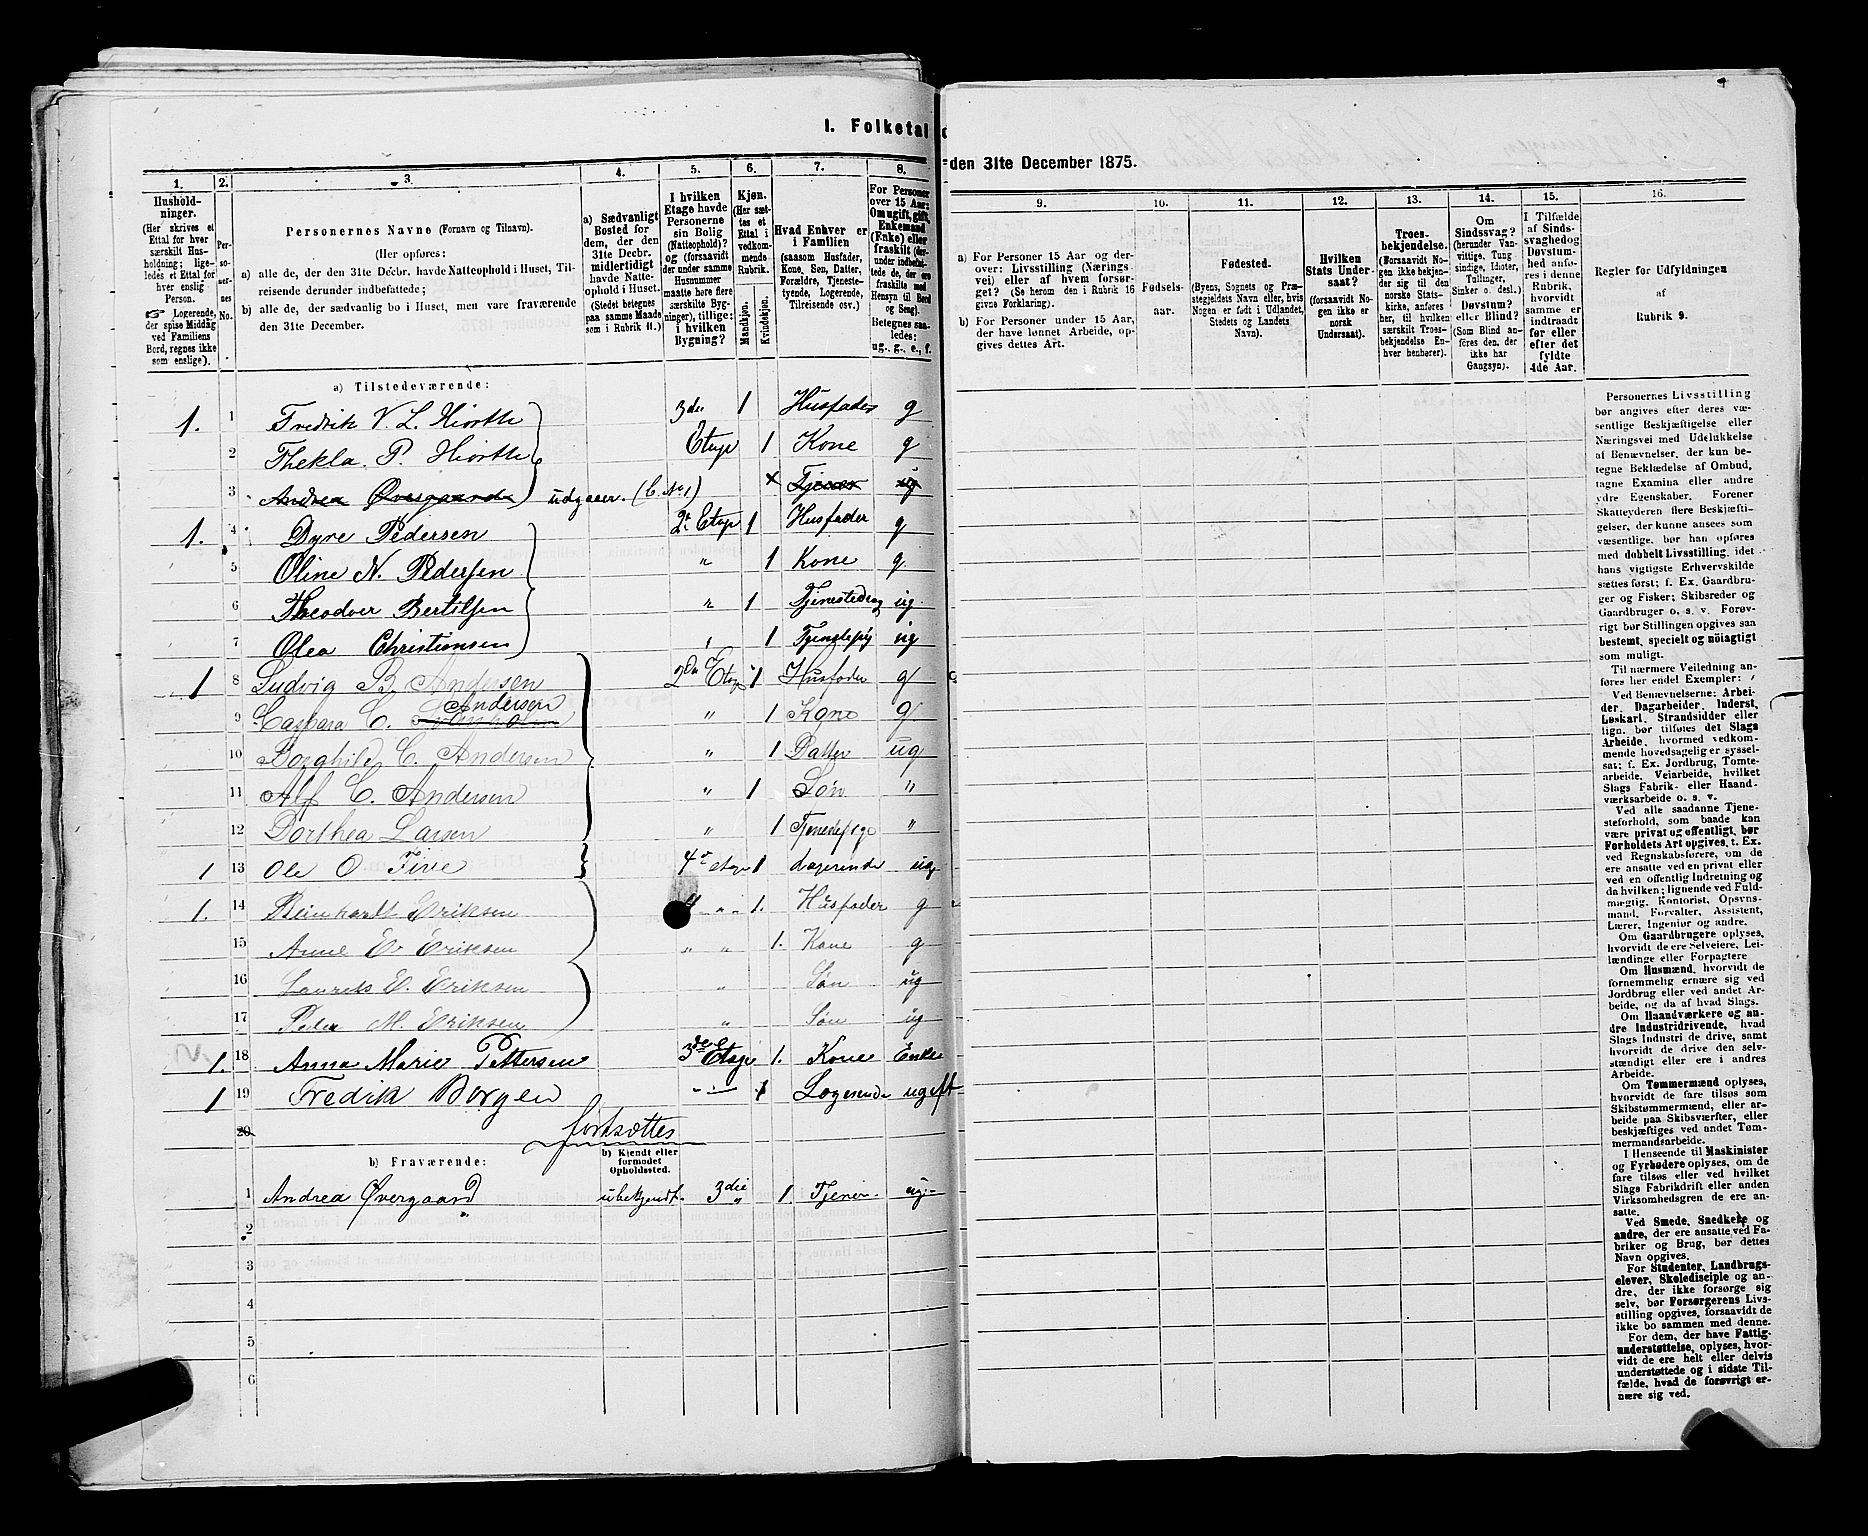 I. Folketal
den 31te December 1875.
1. 2. 3. 4. 5. 6. 7. 8.
Husholdninger.
(Her skrives et
Ettal for hver
særskilt Husholdning;
ligeledes et Ettal for
hver enslig
Person.
☞ Logerende,
der spise Middag
ved Familiens
Bord, regnes ikke
som enslige).
Personernes No.
Personernes Navne (Fornavn og Tilnavn).
(Her opføres:
a) alle de, der den 31te Decbr. havde Natteophold i Huset, Tilreisende derunder indbefattede;
b) alle de, der sædvanlig bo i Huset, men vare fraværende
den 31te December.
a) Sædvanligt
Bosted for
dem, der den
31te Decbr.
midlertidigt
havde Natteophold i Huset.
(Stedet betegnes
paa samme Maade
som i Rubrik 11.)
I hvilken
Etage havde
Personerne
sin Bolig
(Natteophold)?
og (forsaavidt
der under samme
Husnummer
maatte høre flere
særskilte Bygninger), tillige:
i hvilken
Bygning?
Kjøn.
(Her sættes et
Ettal i
vedkommende
Rubrik.)
Mandkjøn.
Kvindekjøn.
Hvad Enhver er
i Familien
(saasom Husfader,
Kone, Søn, Datter,
Forældre, Tjenestetyende, Logerende,
Tilreisende osv.)
For Personer
over 15 Aar:
Om ugift, gift,
Enkemand
(Enke) eller
fraskilt
Betegnes saaledes:
ug., g., e., f.
a) Tilstedeværende:
1. 1 Fredrik V. L. Hiorth 3die 1 Husfader g
2 Thekla P. Hiorth Etage 1 Kone g
3 Andrea Øvergaard udgaaer. (b. No 1) x Tjener ug
1. 4 Dyre Pedersen 2. Etage 1 Husfader g
5 Oline N. Pedersen " 1 Kone g.
6 Theodver Bertilsen " 1 Tjenestedrag ug.
7 Olea Christiansen " 1 ug
1 8 Ludvig B. Andersen 2den Etage 1 Husfader g
Andersen
9 Casbara C. " 1 Kone g
10 Borghild C. Andersen " 1 Datter ug
11 Alf C. Andersen " 1 Søn "
12 Dorthea Larsen " 1 "
1 13 Ole O. Five 4de etage 1 Logerende ug
1. 14 Beinhardt Eriksen 4 " " 1. Husfader g
15 Anne E. Eriksen " " 1. Kone g
16 Laurits E. Eriksen " Søn ug
17 Peder M. Eriksen " Søn ug
1. 18 Anna Marie Pettersen 3de Etage 1. Kone Enke
1 19 Fredik Borgen — " — 1 Logerende ugeft
20 fortsættes
b) Fraværende:
b) Kjendt eller
formodet
Opholdssted.
1 Andrea Øvergaard ubekjendt. 3die " 1. Tjener ug.
2
3
4
5
6
9. 10. 11. 12. 13. 14. 15. 16.
a) For Personer 15 Aar og derover: Livsstilling (Næringsvei) eller af hvem forsørget? (Se herom den i Rubrik 16
givne Forklaring).
b) For Personer under 15 Aar,
der have lønnet Arbeide, opgives dettes Art.
Fødselsaar.
Fødested.
(Byens, Sognets og Præstegjeldets Navn eller, hvis
Nogen er født i Udlandet,
Stedets og Landets
Navn).
Hvilken
Stats Undersaat?
(forsaavidt Nogen ikke er
norsk
Undersaat).
Troesbekjendelse.
(Forsaavidt Nogen ikke bekjender sig til den
norske Statskirke, anføres
her, til hvilken
særskilt Troesbekjendelse Enhver henhører).
Om
Sindssvag?
(herunder Vanvittige, Tungsindige, Idioter,
Tullinger,
Sinker o. desl.).
Døvstum?
eller Blind?
(Som Blind anføres den, der
ikke har
Gangsyn).
I Tilfælde
af Sindssvaghed og
Døvstumhed anføres i denne
Rubrik,
hvorvidt
samme er
indtraadt
før eller
efter det
fyldte
4de Aar.
Regler for Udfyldningen
af
Rubrik 9.
Personernes Livsstilling
bør angives efter deres væsentlige Beskjæftigelse eller
Næringsvei med Udelukkelse
af Benævnelser, der kun betegne Beklædelse af Ombud,
tagne Examina eller andre
ydre Egenskaber. Forener
Skatteyderen flere Beskjæftigelser, der kunne ansees som
væsentlige, bør han opføres
med dobbelt Livsstilling, idet
hans vigtigste Erhvervskilde
sættes først; f. Ex. Gaardbruger og Fisker; Skibsreder og
Gaardbruger o. s. v. Forøvrigt bør Stillingen opgives saa
bestemt, specielt og nöiagtigt
som muligt.
Til nærmere Veiledning anføres her endel Exempler:
Ved Benævnelserne: Arbeider, Dagarbeider, Inderst,
Løskarl, Strandsidder eller
lign. bør tilføies det Slags
Arbeide, hvormed vedkommende hovedsagelig er sysselsat; f. Ex. Jordbrug, Tomtearbeide, Veiarbeide, hvilket
Slags Fabrik- eller Haandværksarbeide o. s. v.
Ved alle saadanne Tjenesteforhold, som baade kan
være privat og offentligt, bør
Forholdets Art opgives, t. Ex.
ved Regnskabsførere, om de
ere ansatte ved en privat eller
ved en offentlig Indretning og
da hvilken; lignende ved Fuldmægtig, Kontorist, Opsynsmand, Forvalter, Assistent,
Lærer, Ingeniør og andre.
Om Gaardbrugere oplyses,
hvorvidt de ere Selveiere, Leilændinge eller Forpagtere
Om Husmænd, hvorvidt de
fornemmelig ernære sig ved
Jordbrug eller ved andet Arbeide, og da af hvad Slags.
Om Haandværkere og andre Industridrivende, hvad
Slags Industri de drive, samt
hvorvidt de drive den selvstændigt eller ere i andres
Arbeide.
Om Tømmermænd oplyses,
hvorvidt de fare tilsøs som
Skibstømmermænd, eller arbeide paa Skibsværfter, eller
beskjæftiges ved andet Tømmermandsarbeide.
I Henseende til Maskinister
og Fyrbødere oplyses, om de
fare tilsøs eller ved hvilket
Slags Fabrikdrift eller anden
Virksomhedsgren de ere ansatte.
Ved Smede, Snedkere og
andre, der ere ansatte ved Fabriker og Brug, bør dettes
Navn opgives.
For Studenter, Landbrugselever, Skoledisciple og andre, der ikke forsørge sig
selv, bør Forsørgerens Livsstilling opgives, forsaavidt de
ikke bo sammen med denne.
For dem, der have Fattigunderstøttelse, oplyses, hvorvidt de ere helt eller delvis
understøttede og i sidste Tilfælde, hvad de forøvrigt ernære sig ved.